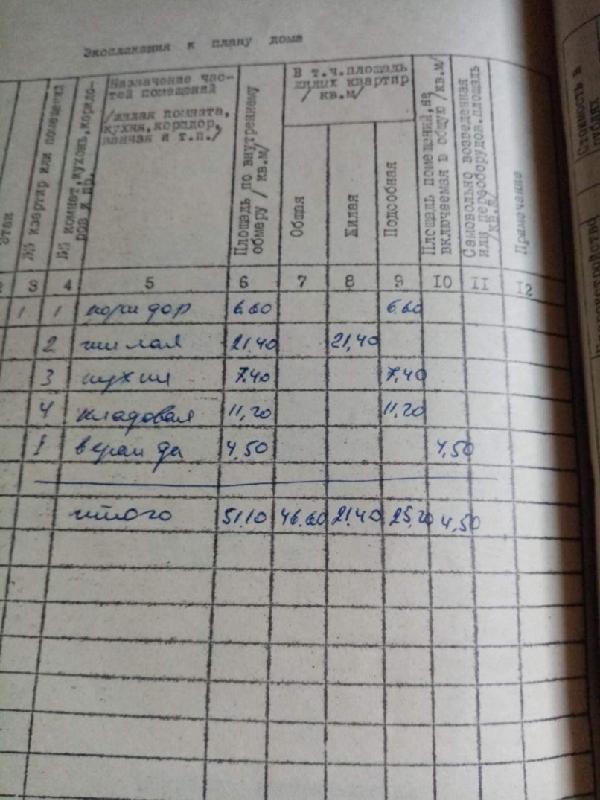 Экспликация к плану дома
Этаж
№№ квартир или помещений
№№ комнат, кухонь, коридоров и пр.
Назначение частей помещений /жилая комната, кухня, коридор, ванная и т.п./
Площадь по внутреннему обмеру / кв.м/
В т.ч. площадь жилых квартир /кв.м/
Общая
Жилая
Подсобная
Площадь помещений, не включаемая в общую /кв.м/
Самовольно возведенная или переоборудов. площадь /кв.м/
Примечание
3 4 5 6 7 8 9 10 11 12
1 1 коридор 6.60 6.60
2 жилая 21,40 21,40
3 кухня 7,40 7,40
4 кладовая 11,20 11,20
I веранда 4,50 4,50
итого 51,10 46.60 21.40 25,20 4,50
Стоимость в